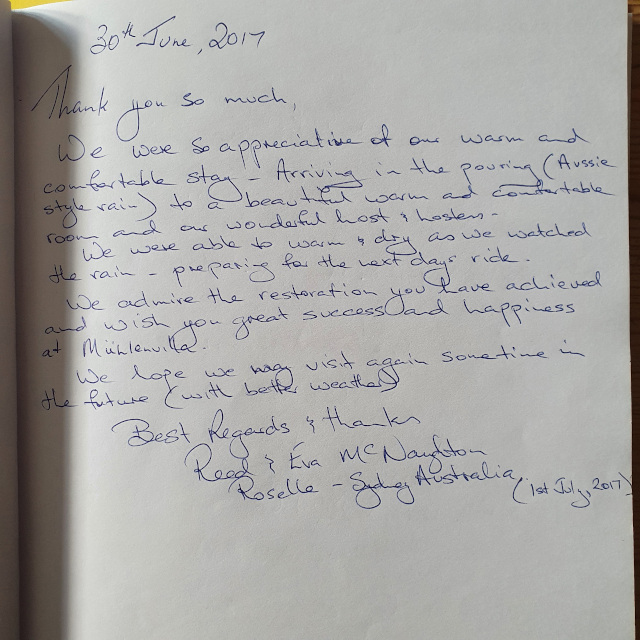 30th June, 2017
Thank you so much,
We were so appreciative of our warm and
comfortable stay - Arriving in the pouring (Aussie
style rain) to a beautiful warm and comfortable
room and our wonderful host & hostess -
We were able to warm & dry as we watched
the rain - preparing for the next days ride.
We admire the restoration you have achieved
and wish you great success and happiness
at Mühlenvilla.
We hope we may visit again sometime in
the future (with better weather)
Best Regards & thanks
Reed & Éva McNaughton
Roselle - Sydney Australia (1st July, 2017)